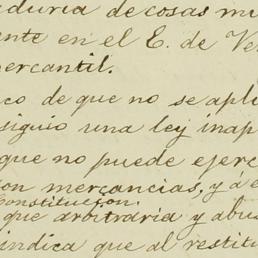 aduria de cosas mu
ante en el E. de Ve
mercantil.
co de que no se apli
siguio una ley inap
que no puede ejerc
on mercancias, y á e
Constitucion.
que arbitraria y abus
indica que al restitu